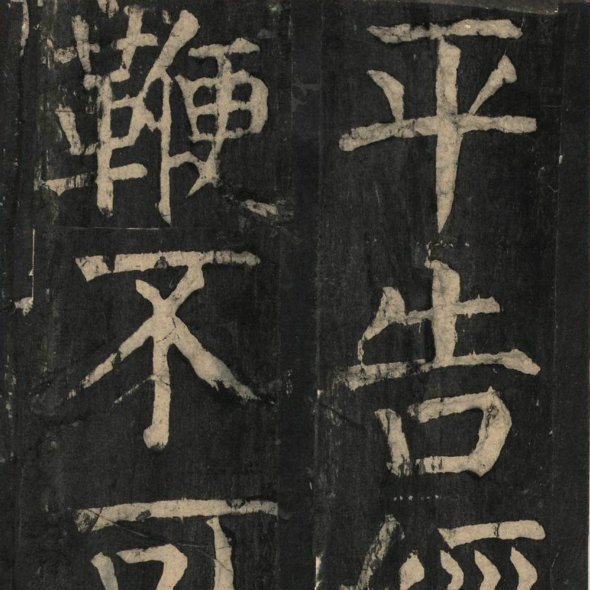 平告
鞭不可